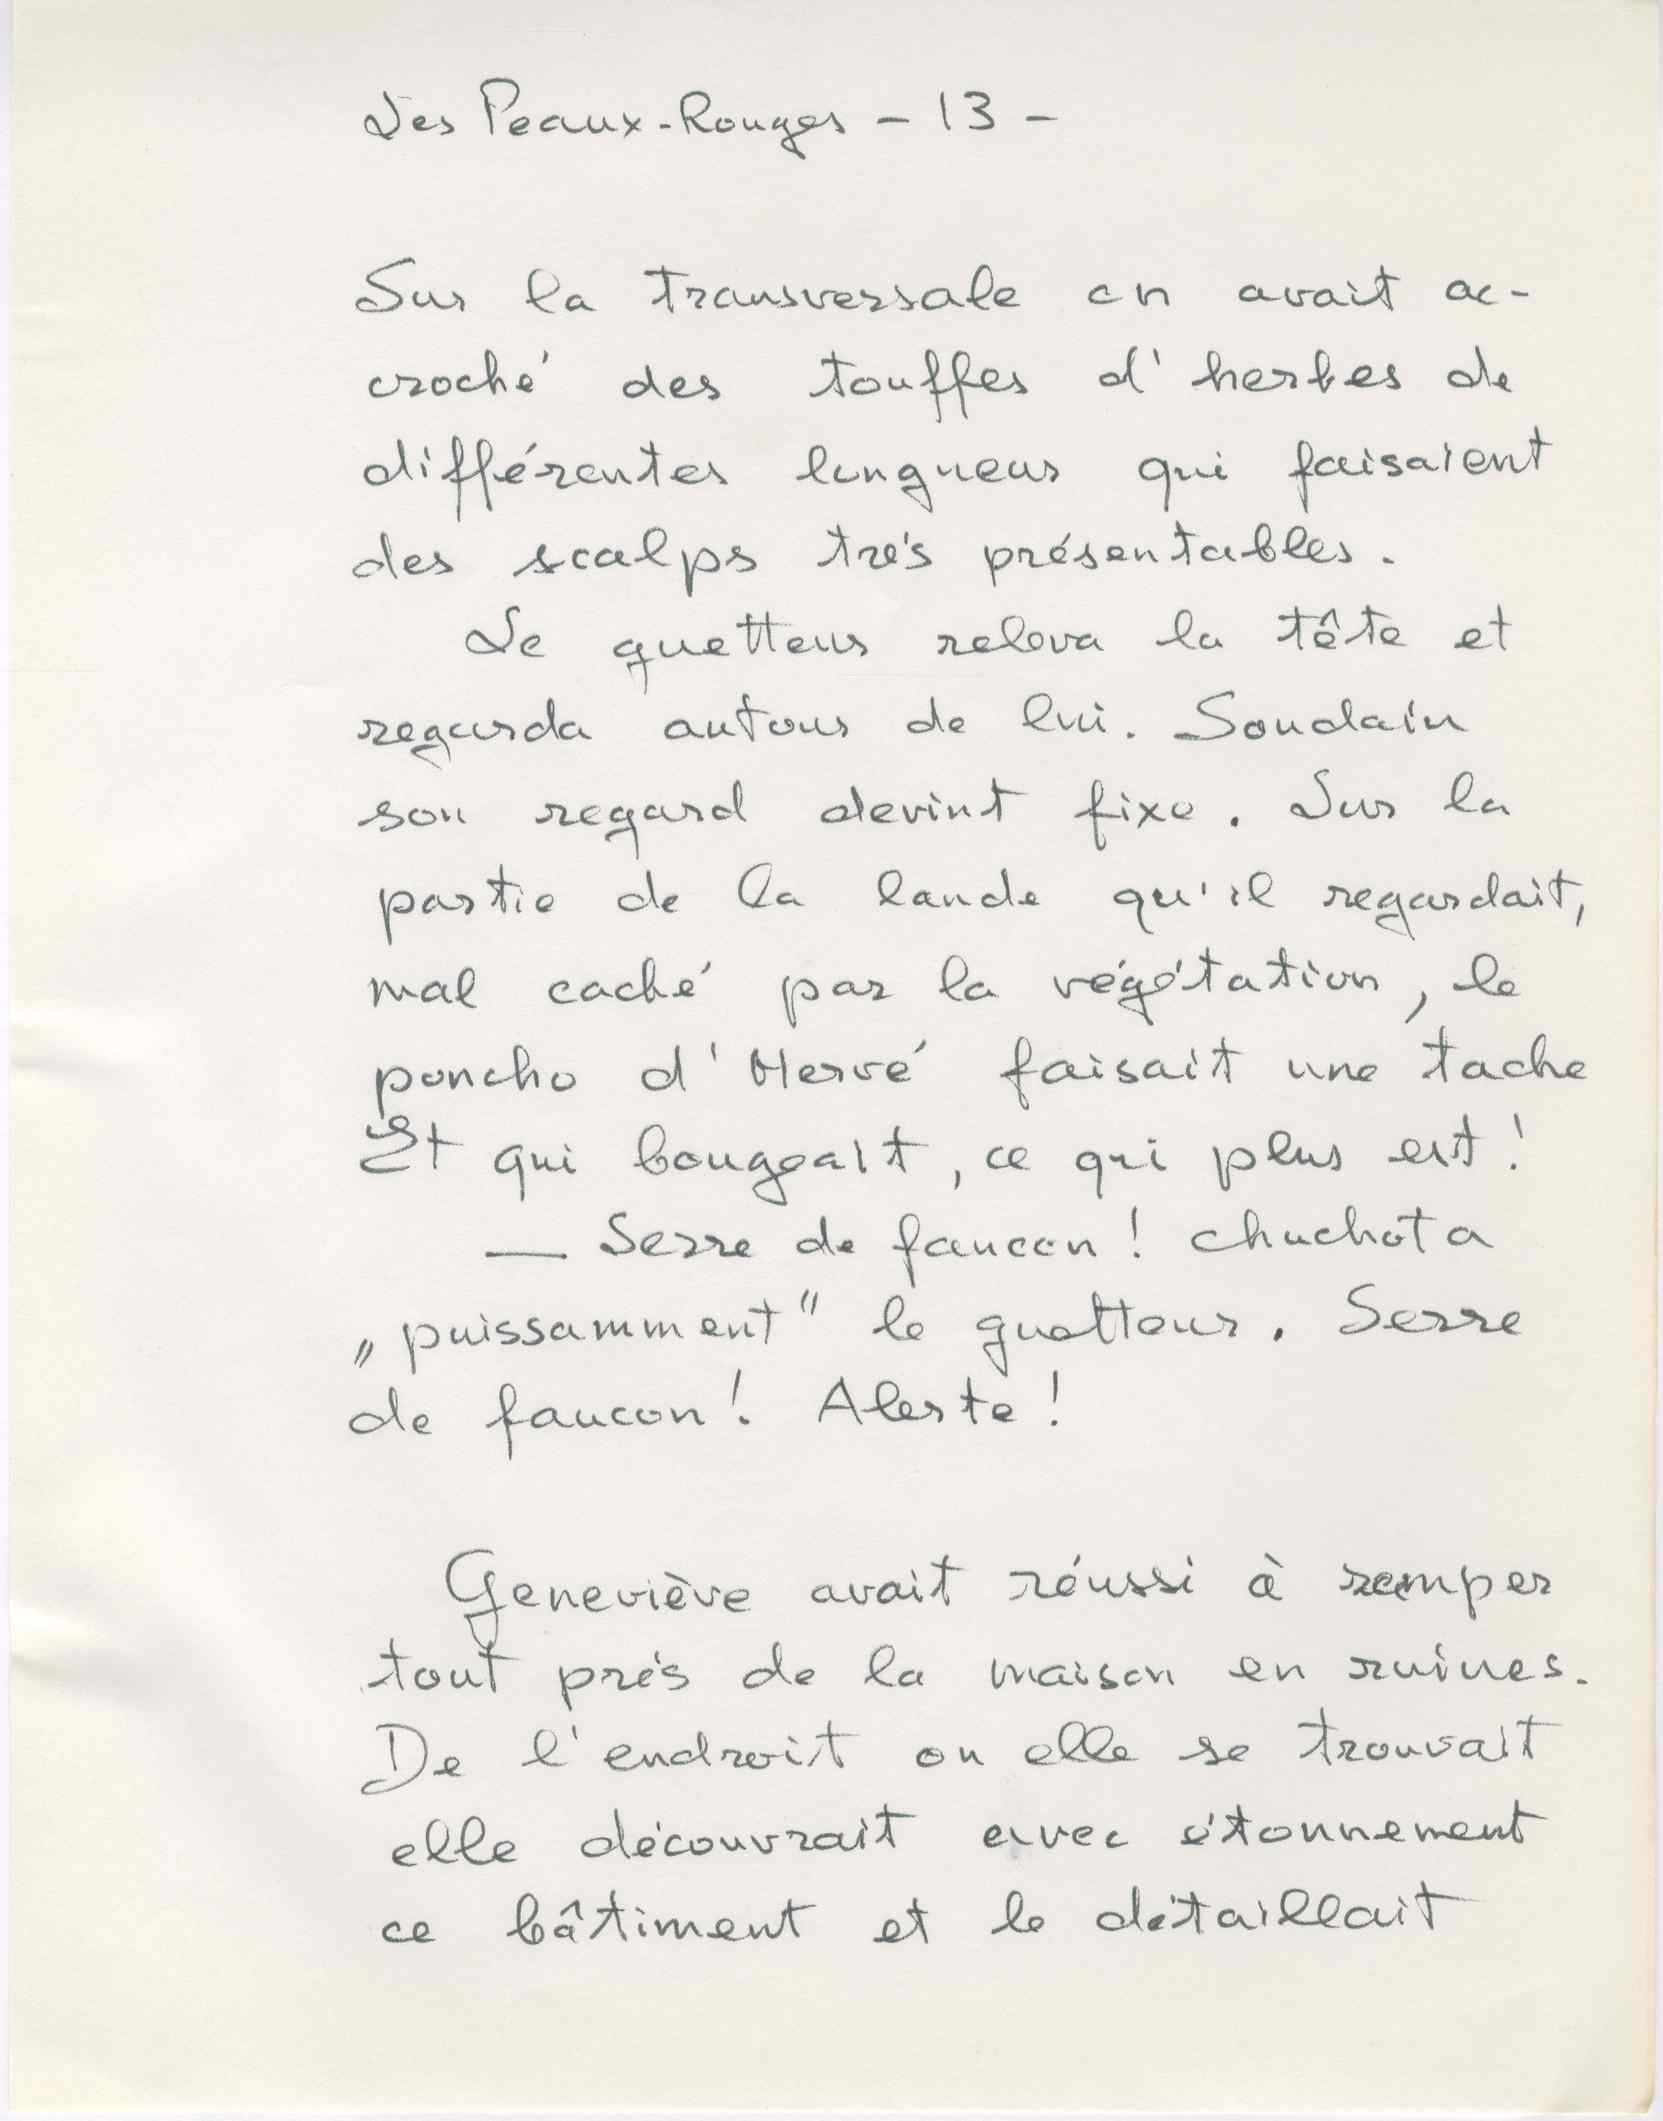 Les Peaux-Rouges - 13 -
Sur la transversale on avait ac-
croché des touffes d'herbes de
différentes longueur qui faisaient
des scalps très présentables.
Le guetteur releva la tête et
regarda autour de lui. Soudain
son regard devint fixe. Sur la
partie de la lande qu'il regardait,
mal caché par la végétation, le
poncho d'Hervé faisait une tache
Et qui bougeait, ce qui plus est !
— Serre de faucon ! chuchota
„puissamment" le guetteur. Serre
de faucon ! Alerte !
Geneviève avait réussi à ramper
tout près de la maison en ruines.
De l'endroit ou elle se trouvait
elle découvrait avec étonnement
ce bâtiment et le détaillait